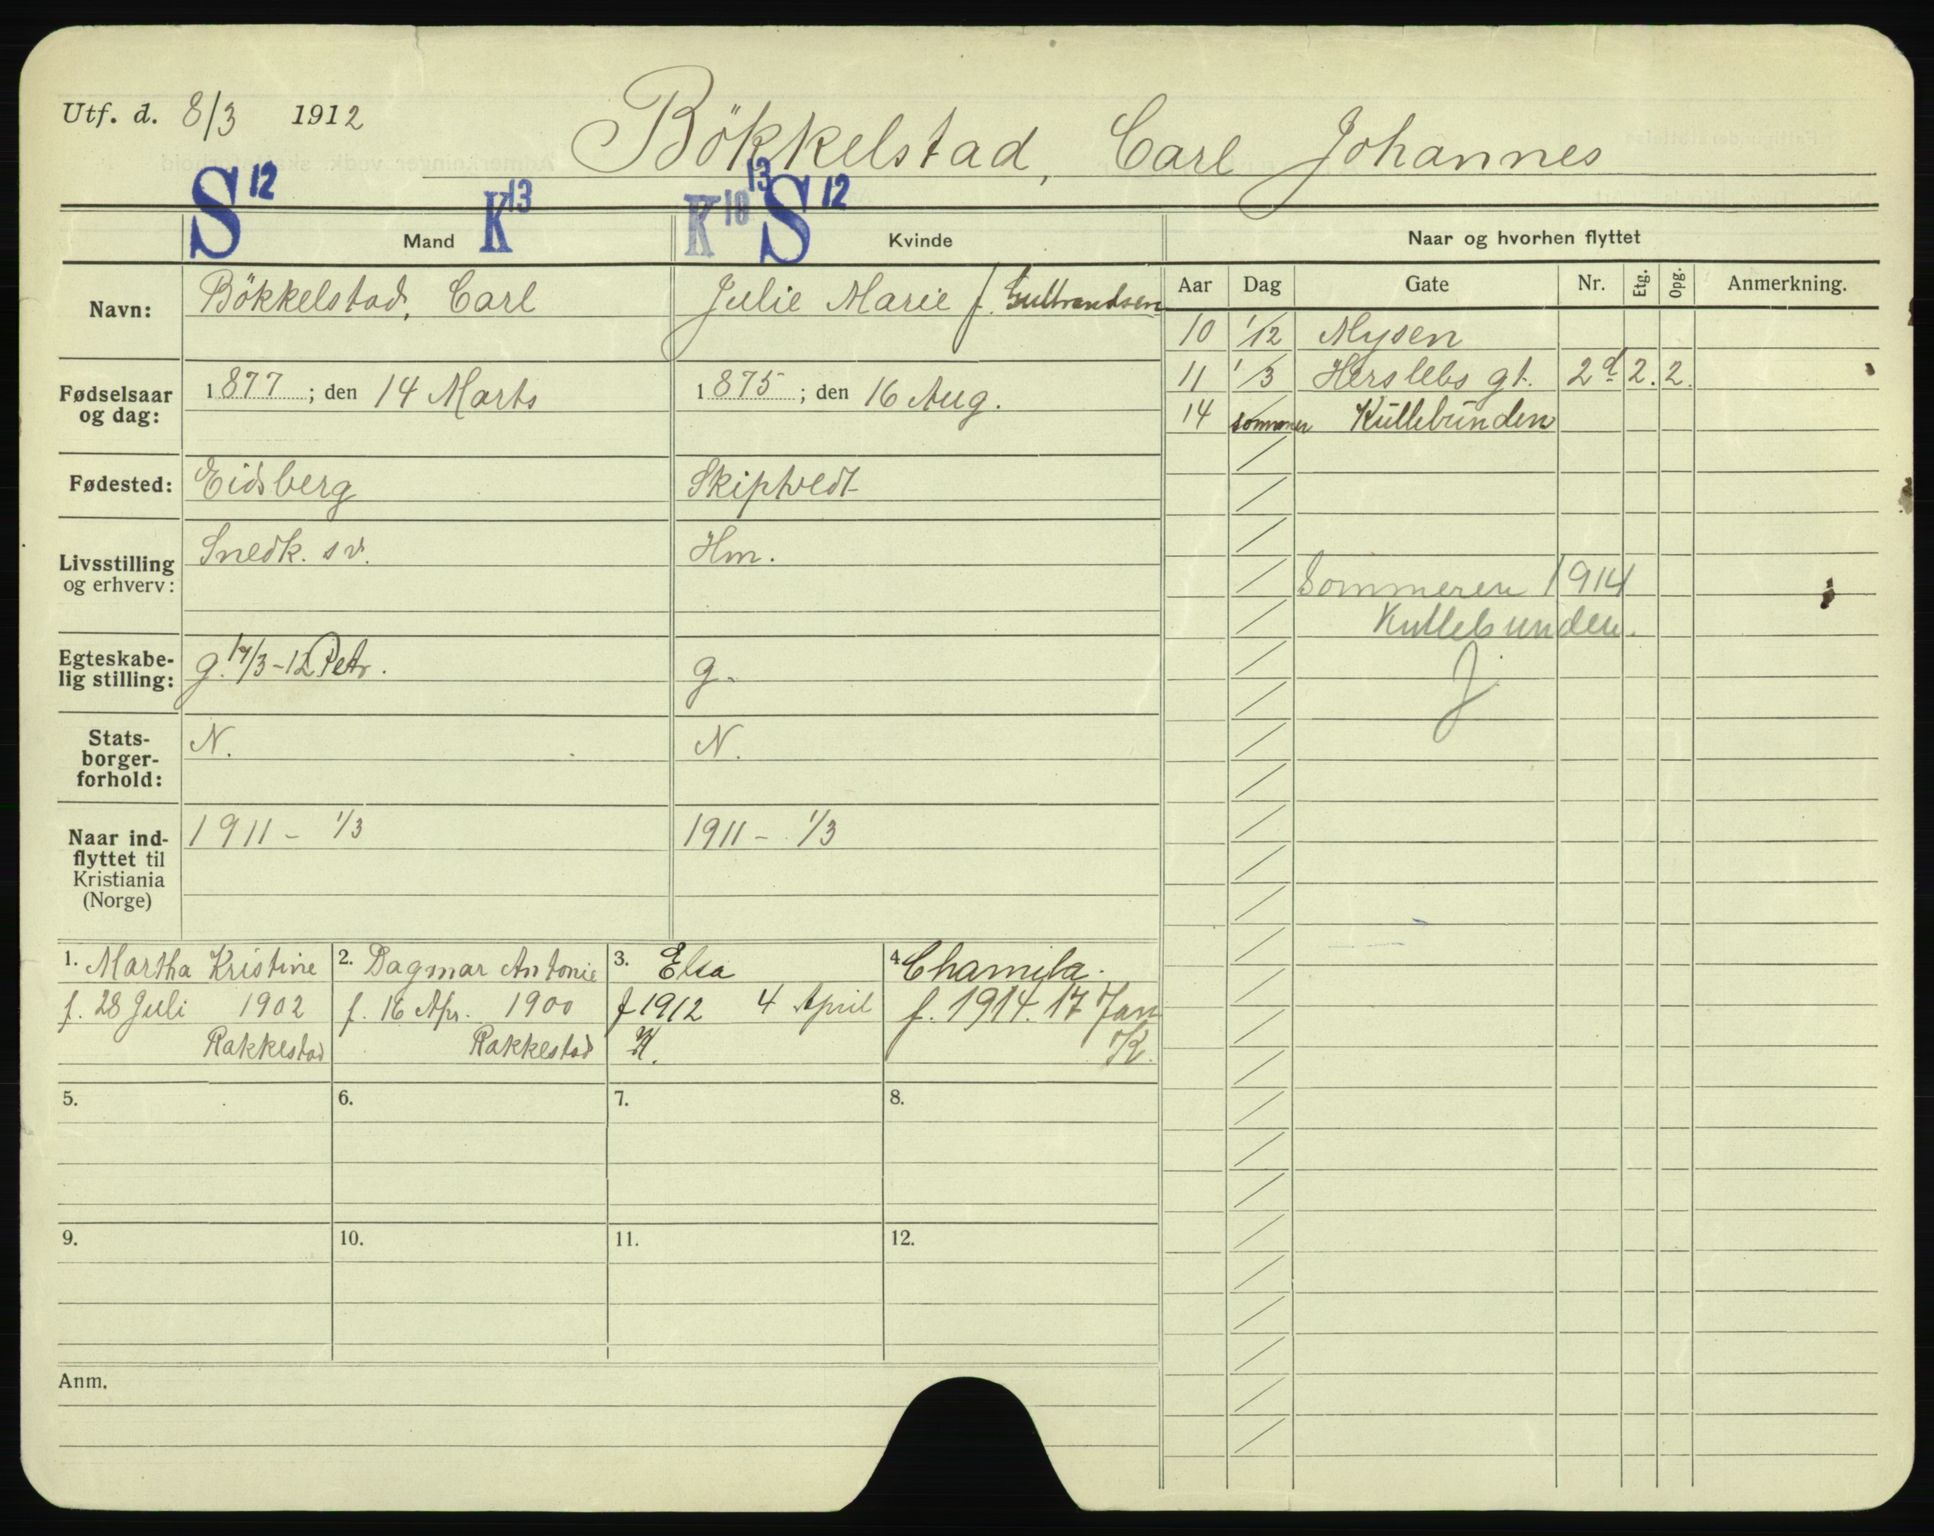 Utf. d. 8/3 1912
Bökkelstad, Carl Johannes
S 12 K 13 K 13 S 12
Mand Kvinde Naar og hvorhen flyttet
Aar Dag Gate Nr. Etg. Opg. Anmerkning.
Navn: Bökkelstad, Carl Julie Marie f. Gulbrandsen
10 1/12 Mysen
11 1/3 Herslebs gt. 2d 2. 2.
14 sommer Kullebunden
Fødselsaar og dag: 1877; den 14 Marts 1875; den 16 Aug.
Fødested: Eidsberg Skiptvedt
Livsstilling og erhverv: Snedk. sv. Hm.
Sommeren 1914
Kullebunden.
J
Egteskabe-
lig stilling: g. 14/3-12 Petr. g.
Stats-
borger-
forhold: N. N.
Naar ind-
flyttet til
Kristiania
(Norge) 1911 - 1/3 1911 - 1/3
1. Martha Kristine 2. Dagmar Antonie 3. Elsa 4. Chamila.
f. 28 Juli 1902 f. 16 Apr. 1900 f 1912 4 April f. 1914. 17 Jan
Rakkestad Rakkestad K. K.
5. 6. 7. 8.
9. 10. 11. 12.
Anm.